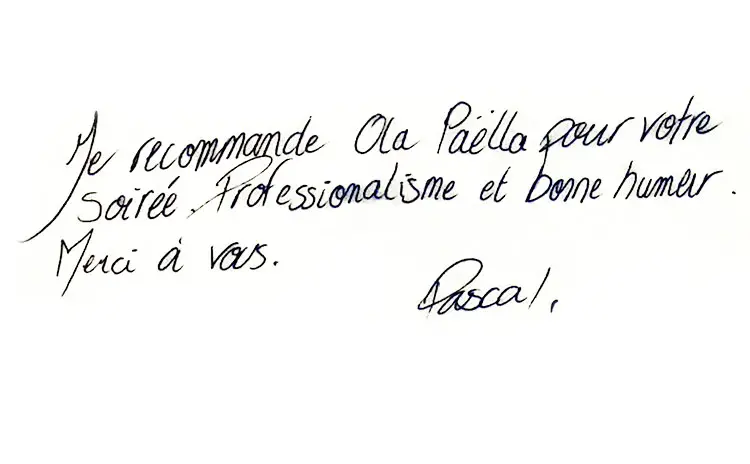 Je recommande Ola Paëlla pour votre
soirée. Professionnalisme et bonne humeur.
Merci à vous.
Pascal.